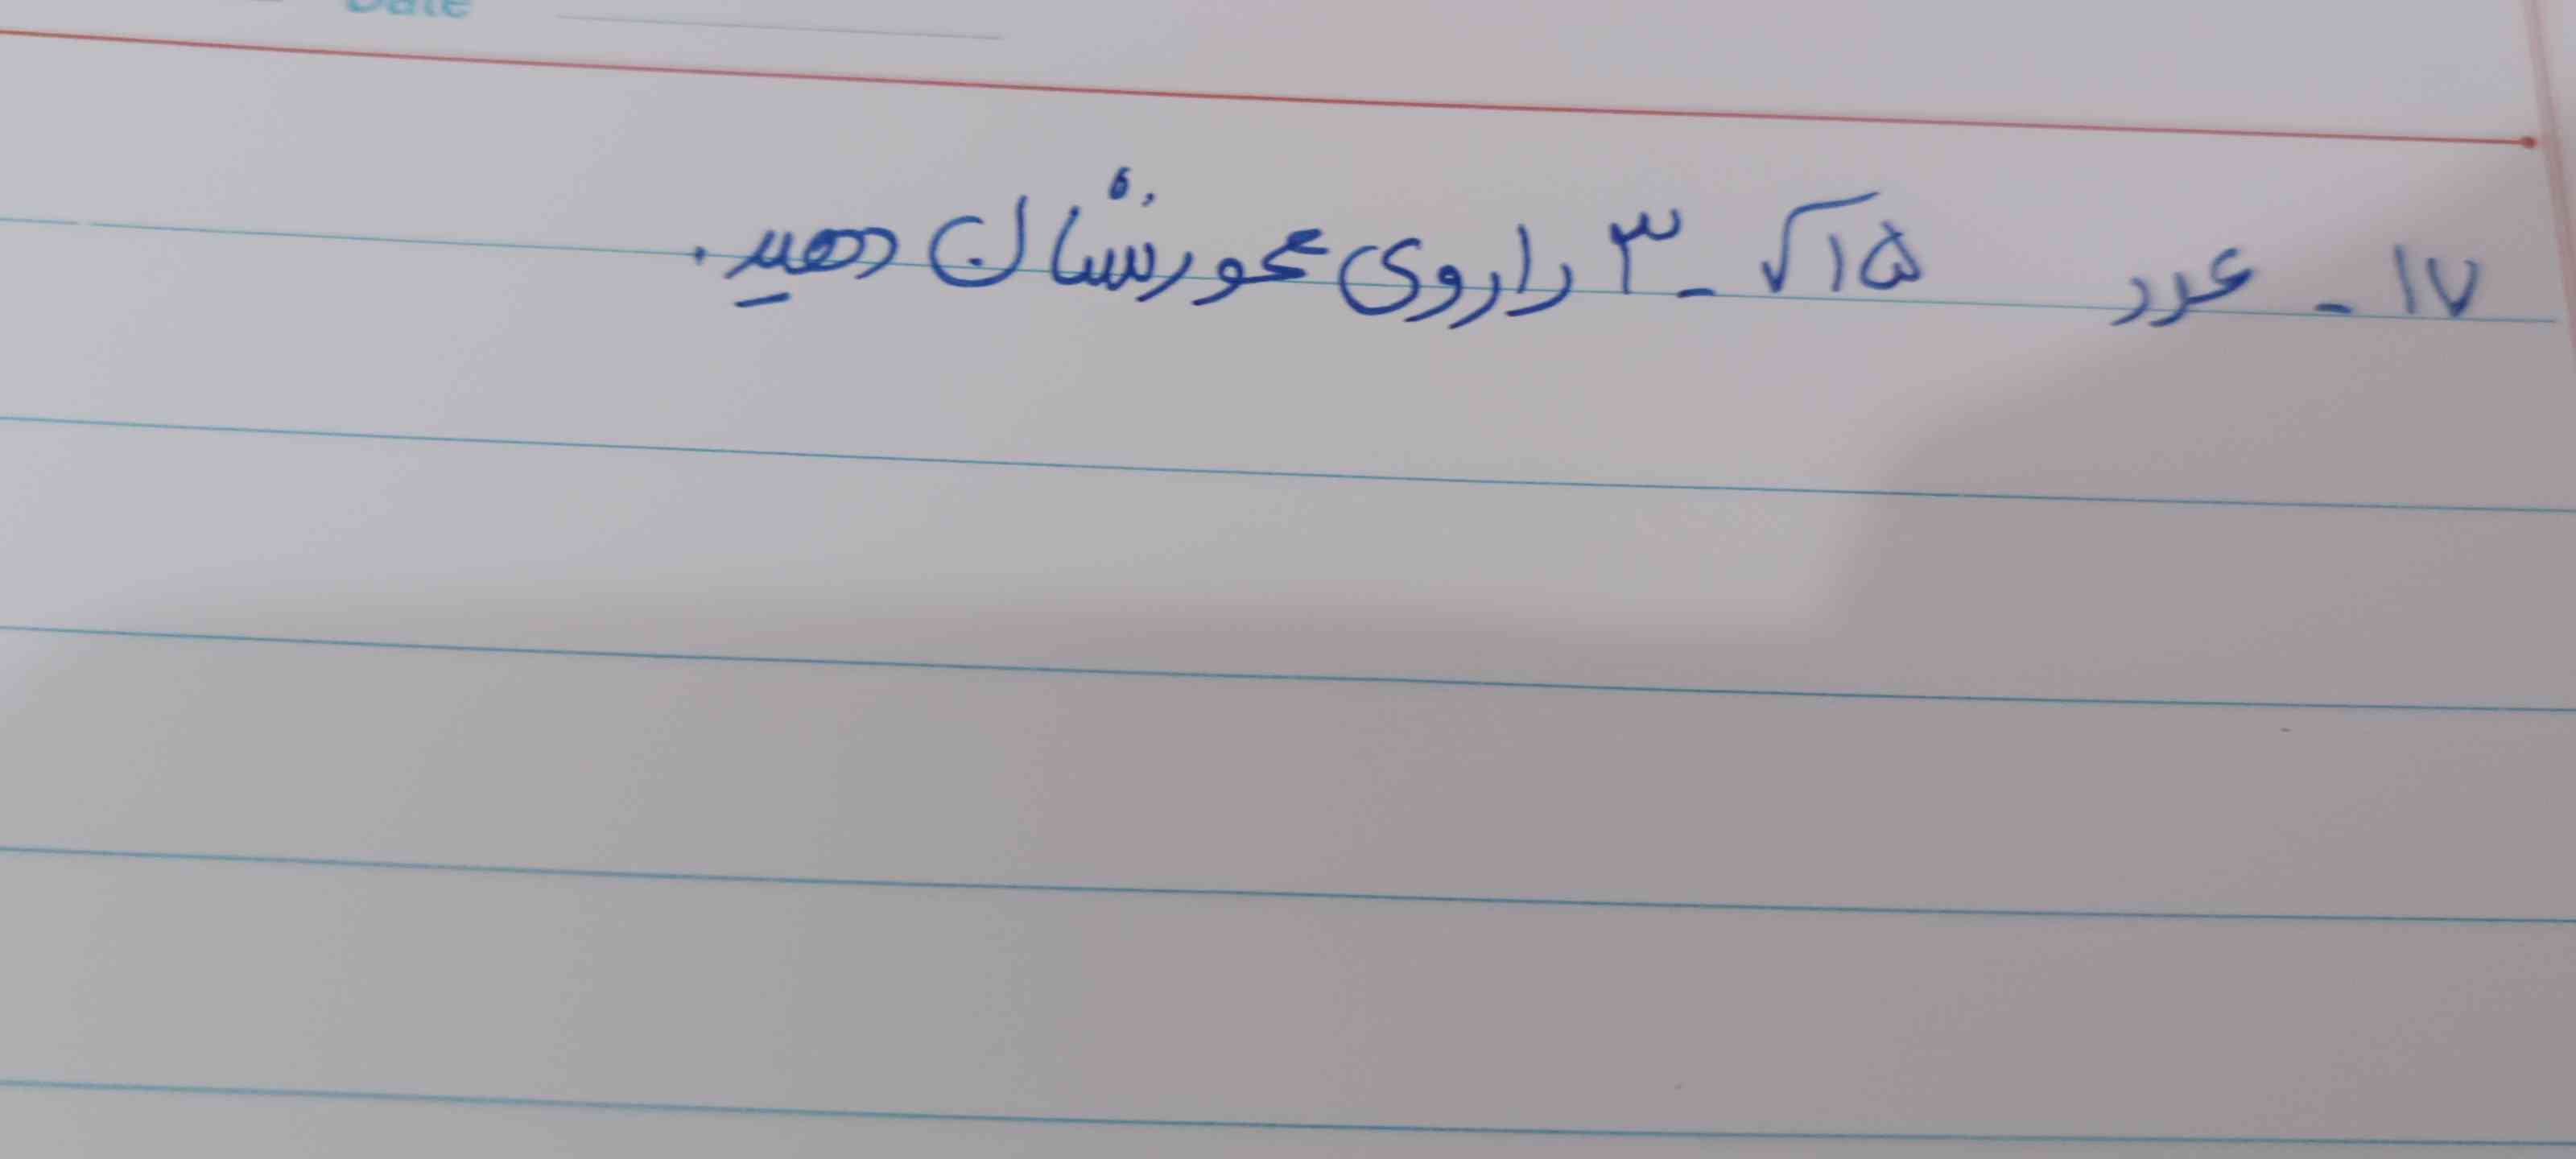 Date
۱۷ - عدد ۳ - √۱۵ را روی محور نشان دهید.